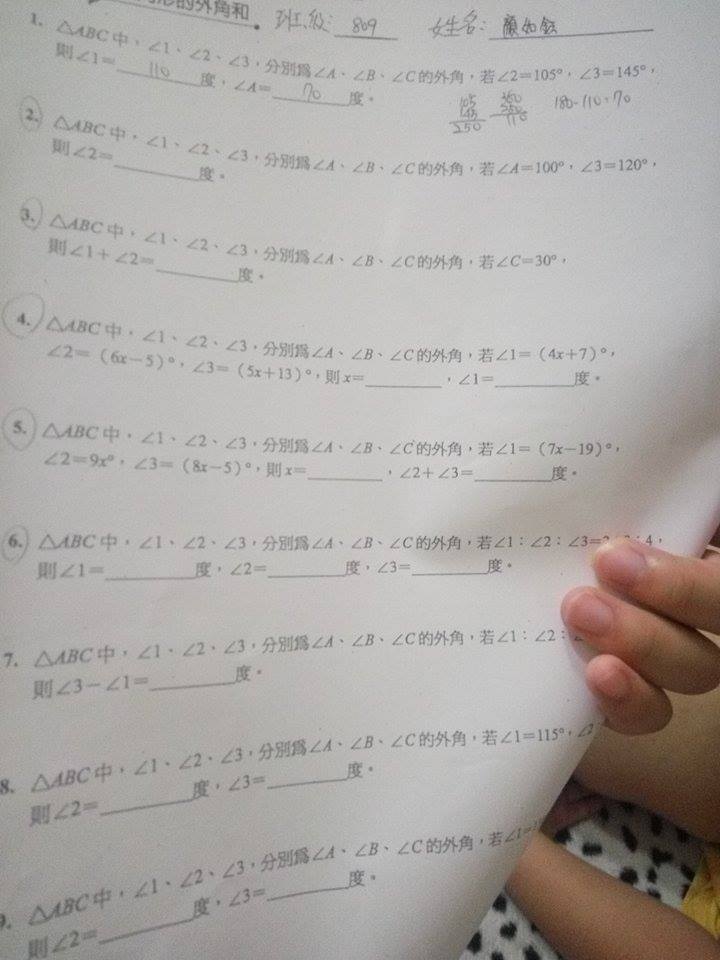 形的外角和 班級：809 姓名：
1. △ABC中，∠1、∠2、∠3，分別為∠A、∠B、∠C的外角，若∠2=105°，∠3=145°，
則∠1=110度，∠A=70度。
105 145 250
360 250 110
180-110=70
2. △ABC中，∠1、∠2、∠3，分別為∠A、∠B、∠C的外角，若∠A=100°，∠3=120°，
則∠2=______度。
3. △ABC中，∠1、∠2、∠3，分別為∠A、∠B、∠C的外角，若∠C=30°，
則∠1+∠2=______度。
4. △ABC中，∠1、∠2、∠3，分別為∠A、∠B、∠C的外角，若∠1=（4x+7）°，
∠2=（6x-5）°，∠3=（5x+13）°，則x=______，∠1=______度。
5. △ABC中，∠1、∠2、∠3，分別為∠A、∠B、∠C的外角，若∠1=（7x-19）°，
∠2=9x°，∠3=（8x-5）°，則x=______，∠2+∠3=______度。
6. △ABC中，∠1、∠2、∠3，分別為∠A、∠B、∠C的外角，若∠1：∠2：∠3=：4，
則∠1=______度，∠2=______度，∠3=______度。
7. △ABC中，∠1、∠2、∠3，分別為∠A、∠B、∠C的外角，若∠1：∠2：
則∠3-∠1=______度。
8. △ABC中，∠1、∠2、∠3，分別為∠A、∠B、∠C的外角，若∠1=115°，∠2
則∠2=______度，∠3=______度。
9. △ABC中，∠1、∠2、∠3，分別為∠A、∠B、∠C的外角，若∠1=
則∠2=______度，∠3=______度。